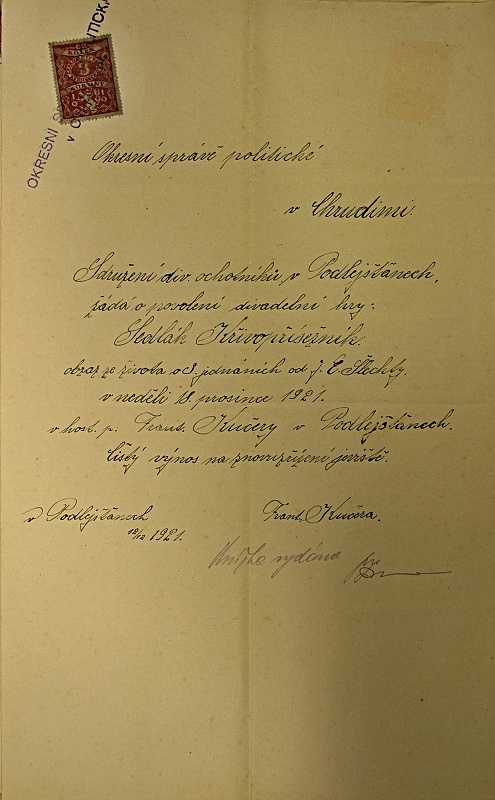 OKRESNÍ
v
Okresní správě politické
v Chrudimi.
Sdružení div. ochotníků v Podlejšťanech,
žádá o povolení divadelní hry:
Sedlák Křivopřísežník.
obraz ze života o 3. jednáních od J. E. Šlechty.
v neděli 18. prosince 1921.
v host. p. Frant. Kučery v Podlejšťanech.
čistý výnos na znovuzřízení jeviště.
v Podlejšťanech
12/12 1921.
Frant. Kučera.
vydána